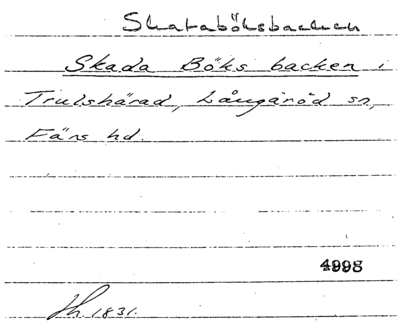 Skataböksbacken
Skada Böks backen i
Trulshärad, Långaröd sn,
Färs hd.
4998
1831.